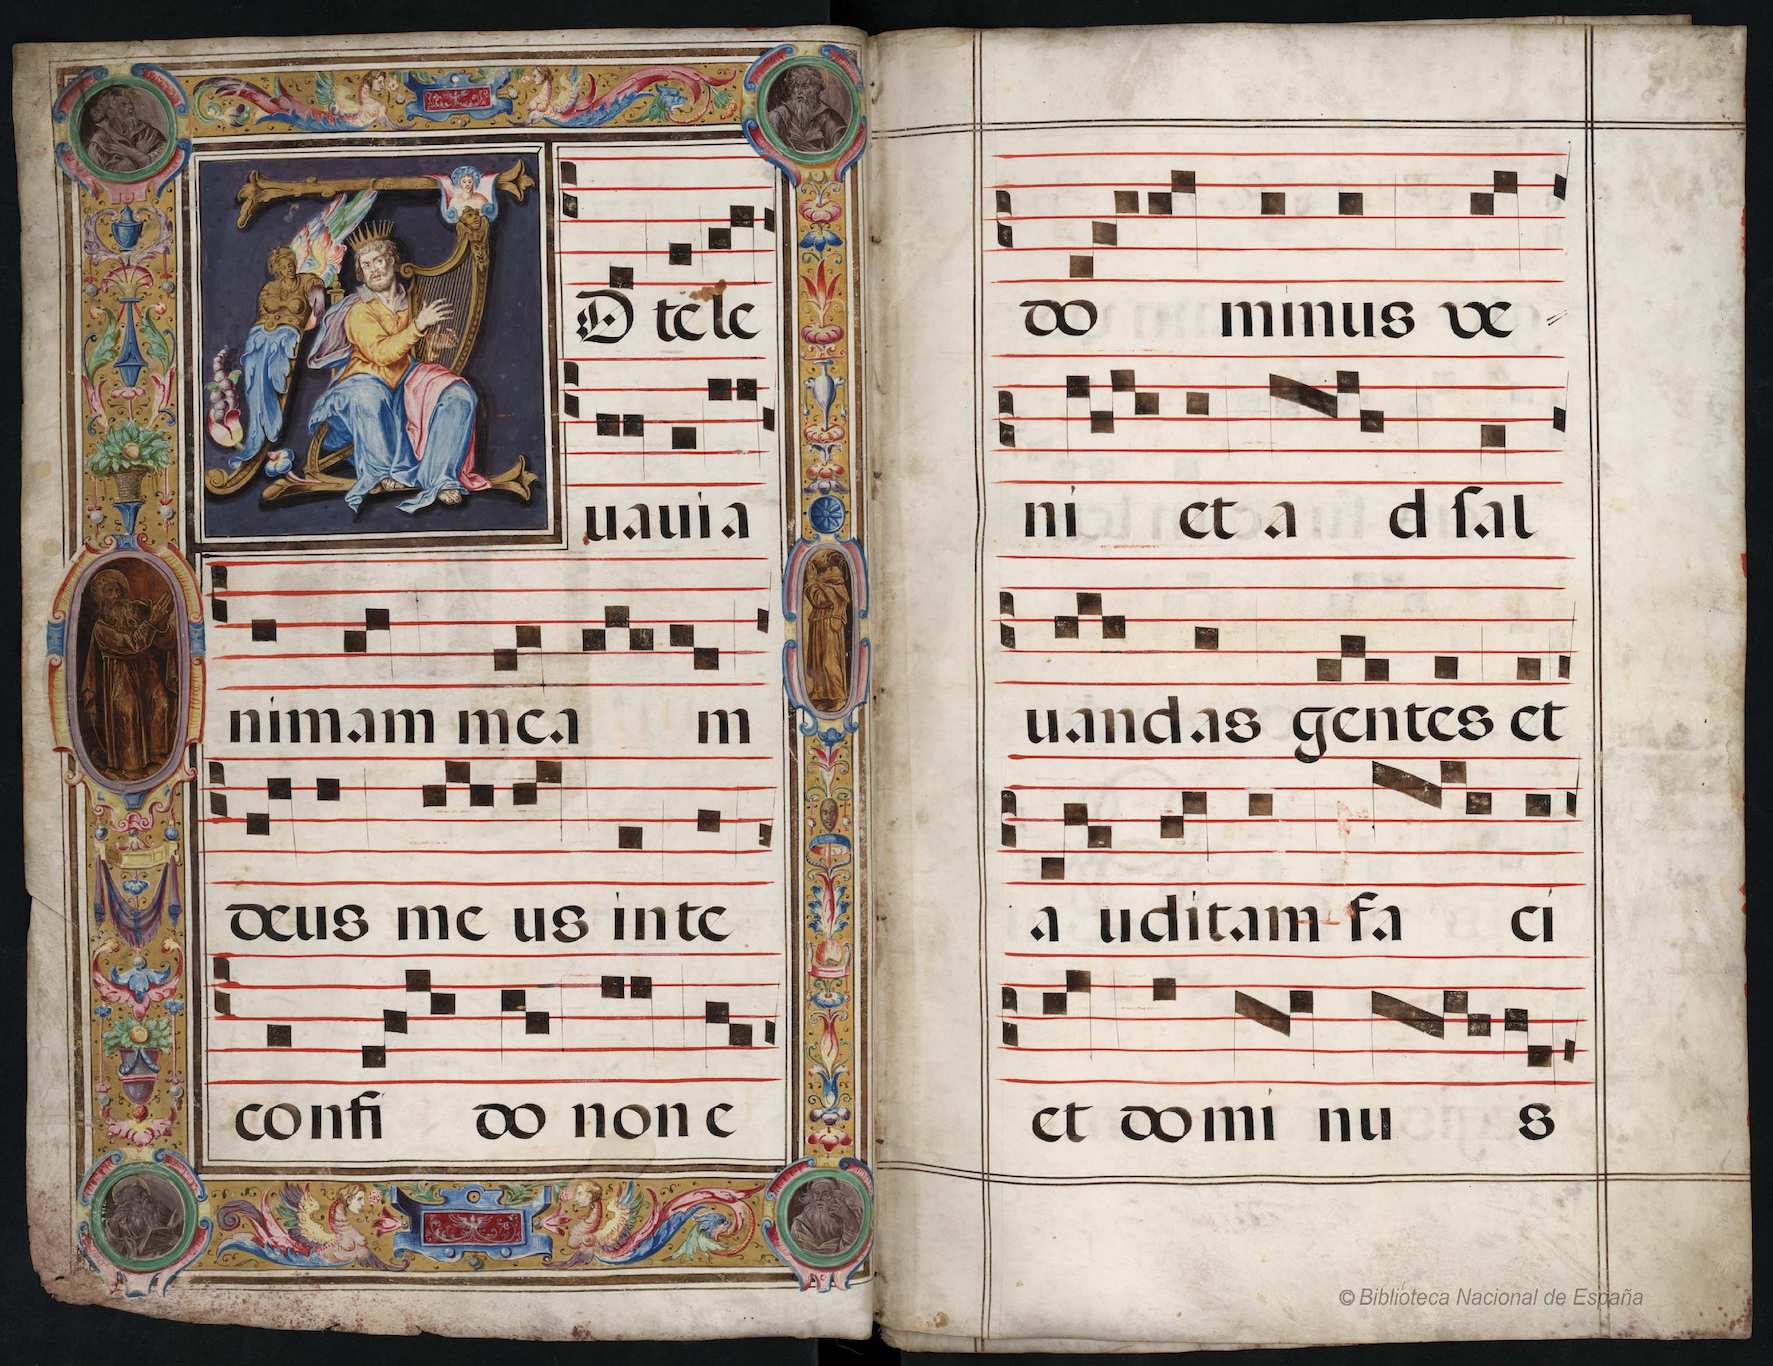 AD tele
uauia
nimam mea m
deus me us in te
confi do non e
do minus ve
ni et a d sal
uandas gentes et
a uditam fa ci
et domi nu s
© Biblioteca Nacional de España